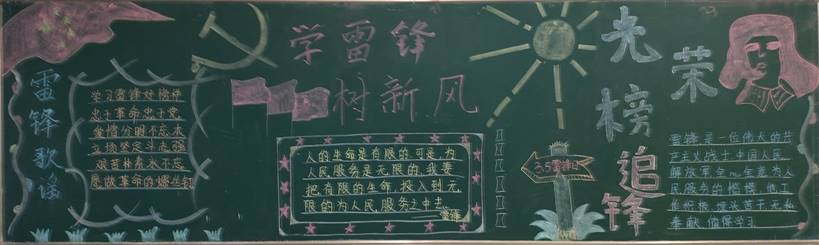 学雷锋
树新风
雷锋歌谣
学习雷锋好榜样
忠于革命忠于党
爱憎分明不忘本
立场坚定斗志强
艰苦朴素永不忘
愿做革命的螺丝钉
人的生命是有限的可是,为
人民服务是无限的,我要
把有限的生命,投入到无
限的为人民服务之中去
——雷锋
3.5雷锋日
光荣榜
追锋
雷锋是一位伟大的共
产主义战士,中国人民
解放军全心全意为人
民服务的楷模,他工
奉献,值得学习